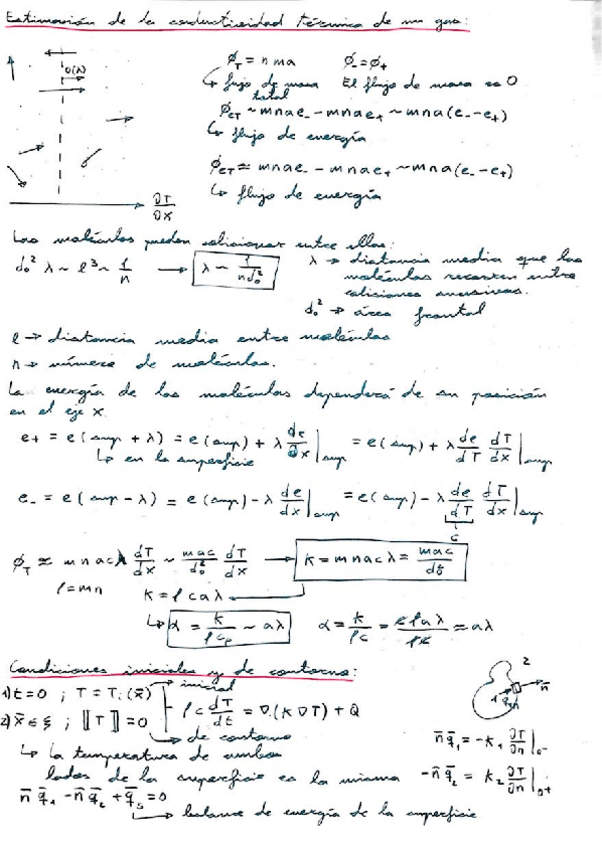 Estimación de la conductividad térmica de un gas:
O(λ)
ϕ_T = n m a     ϕ_- = ϕ_+
↳ flujo de masa total     El flujo de masa es 0
ϕ_eT ~ m n a e_- − m n a e_+ ~ m n a (e_- − e_+)
↳ flujo de energía
ϕ_eT ≈ m n a e_- − m n a e_+ ~ m n a (e_- − e_+)
↳ flujo de energía
∂T/∂x
Las moléculas pueden colisionar entre ellas:
d_o² λ ~ l³ ~ 1/n → λ ~ 1/(n d_o²)     λ → distancia media que las moléculas recorren entre colisiones sucesivas.
d_o² → área frontal
l → distancia media entre moléculas
n → número de moléculas.
La energía de las moléculas dependerá de su posición
en el eje x.
e_+ = e(sup + λ) = e(sup) + λ de/∂x|_sup = e(sup) + λ de/dT dT/dx|_sup
↳ en la superficie
e_- = e(sup − λ) = e(sup) − λ de/dx|_sup = e(sup) − λ de/dT dT/dx|_sup
c
ϕ_T ≈ m n a c λ dT/dx ~ mac/d_o² dT/dx → K = m n a c λ = mac/d_o²
ρ = mn     K = ρ c a λ
↳ α = K/(ρ c_p) ~ aλ     α = K/(ρc) = cρaλ/(ρc) = aλ
Condiciones iniciales y de contorno:
1) t = 0 ; T = T_i (x̄) → inicial
ρ c dT/dt = ∇·(K ∇T) + Q
2) x̄ ∈ ξ ; ⟦T⟧ = 0 → de contorno
↳ La temperatura de ambos
lados de la superficie es la misma
n̄ q̄_1 − n̄ q̄_2 + q̄_s = 0
↳ balance de energía de la superficie
2
1     n̄
n̄ q̄_1 = −K_1 ∂T/∂n|_0-
−n̄ q̄_2 = K_2 ∂T/∂n|_0+